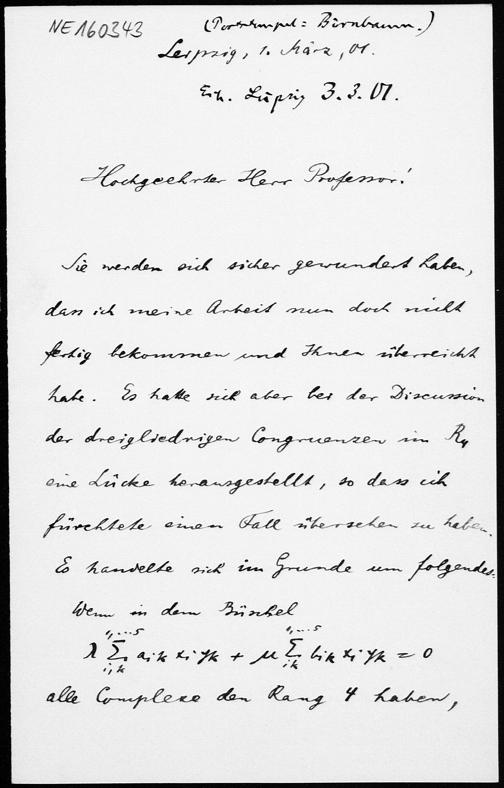 NE160343
(Poststempel: Birnbaum.)
Leipzig, 1. März, 01.
Erh. Leipzig 3.3.01.
Hochgeehrter Herr Professor!
Sie werden sich sicher gewundert haben,
dass ich meine Arbeit nun doch nicht
fertig bekommen und Ihnen überreicht
habe. Es hatte sich aber bei der Discussion
der dreigliedrigen Congruenzen im R₄
eine Lücke herausgestellt, so dass ich
fürchtete einen Fall übersehen zu haben.
Es handelte sich im Grunde um folgendes:
Wenn in dem Büschel
λ Σ aik xi yk + μ Σ bik xi yk = 0
alle Complexe den Rang 4 haben,